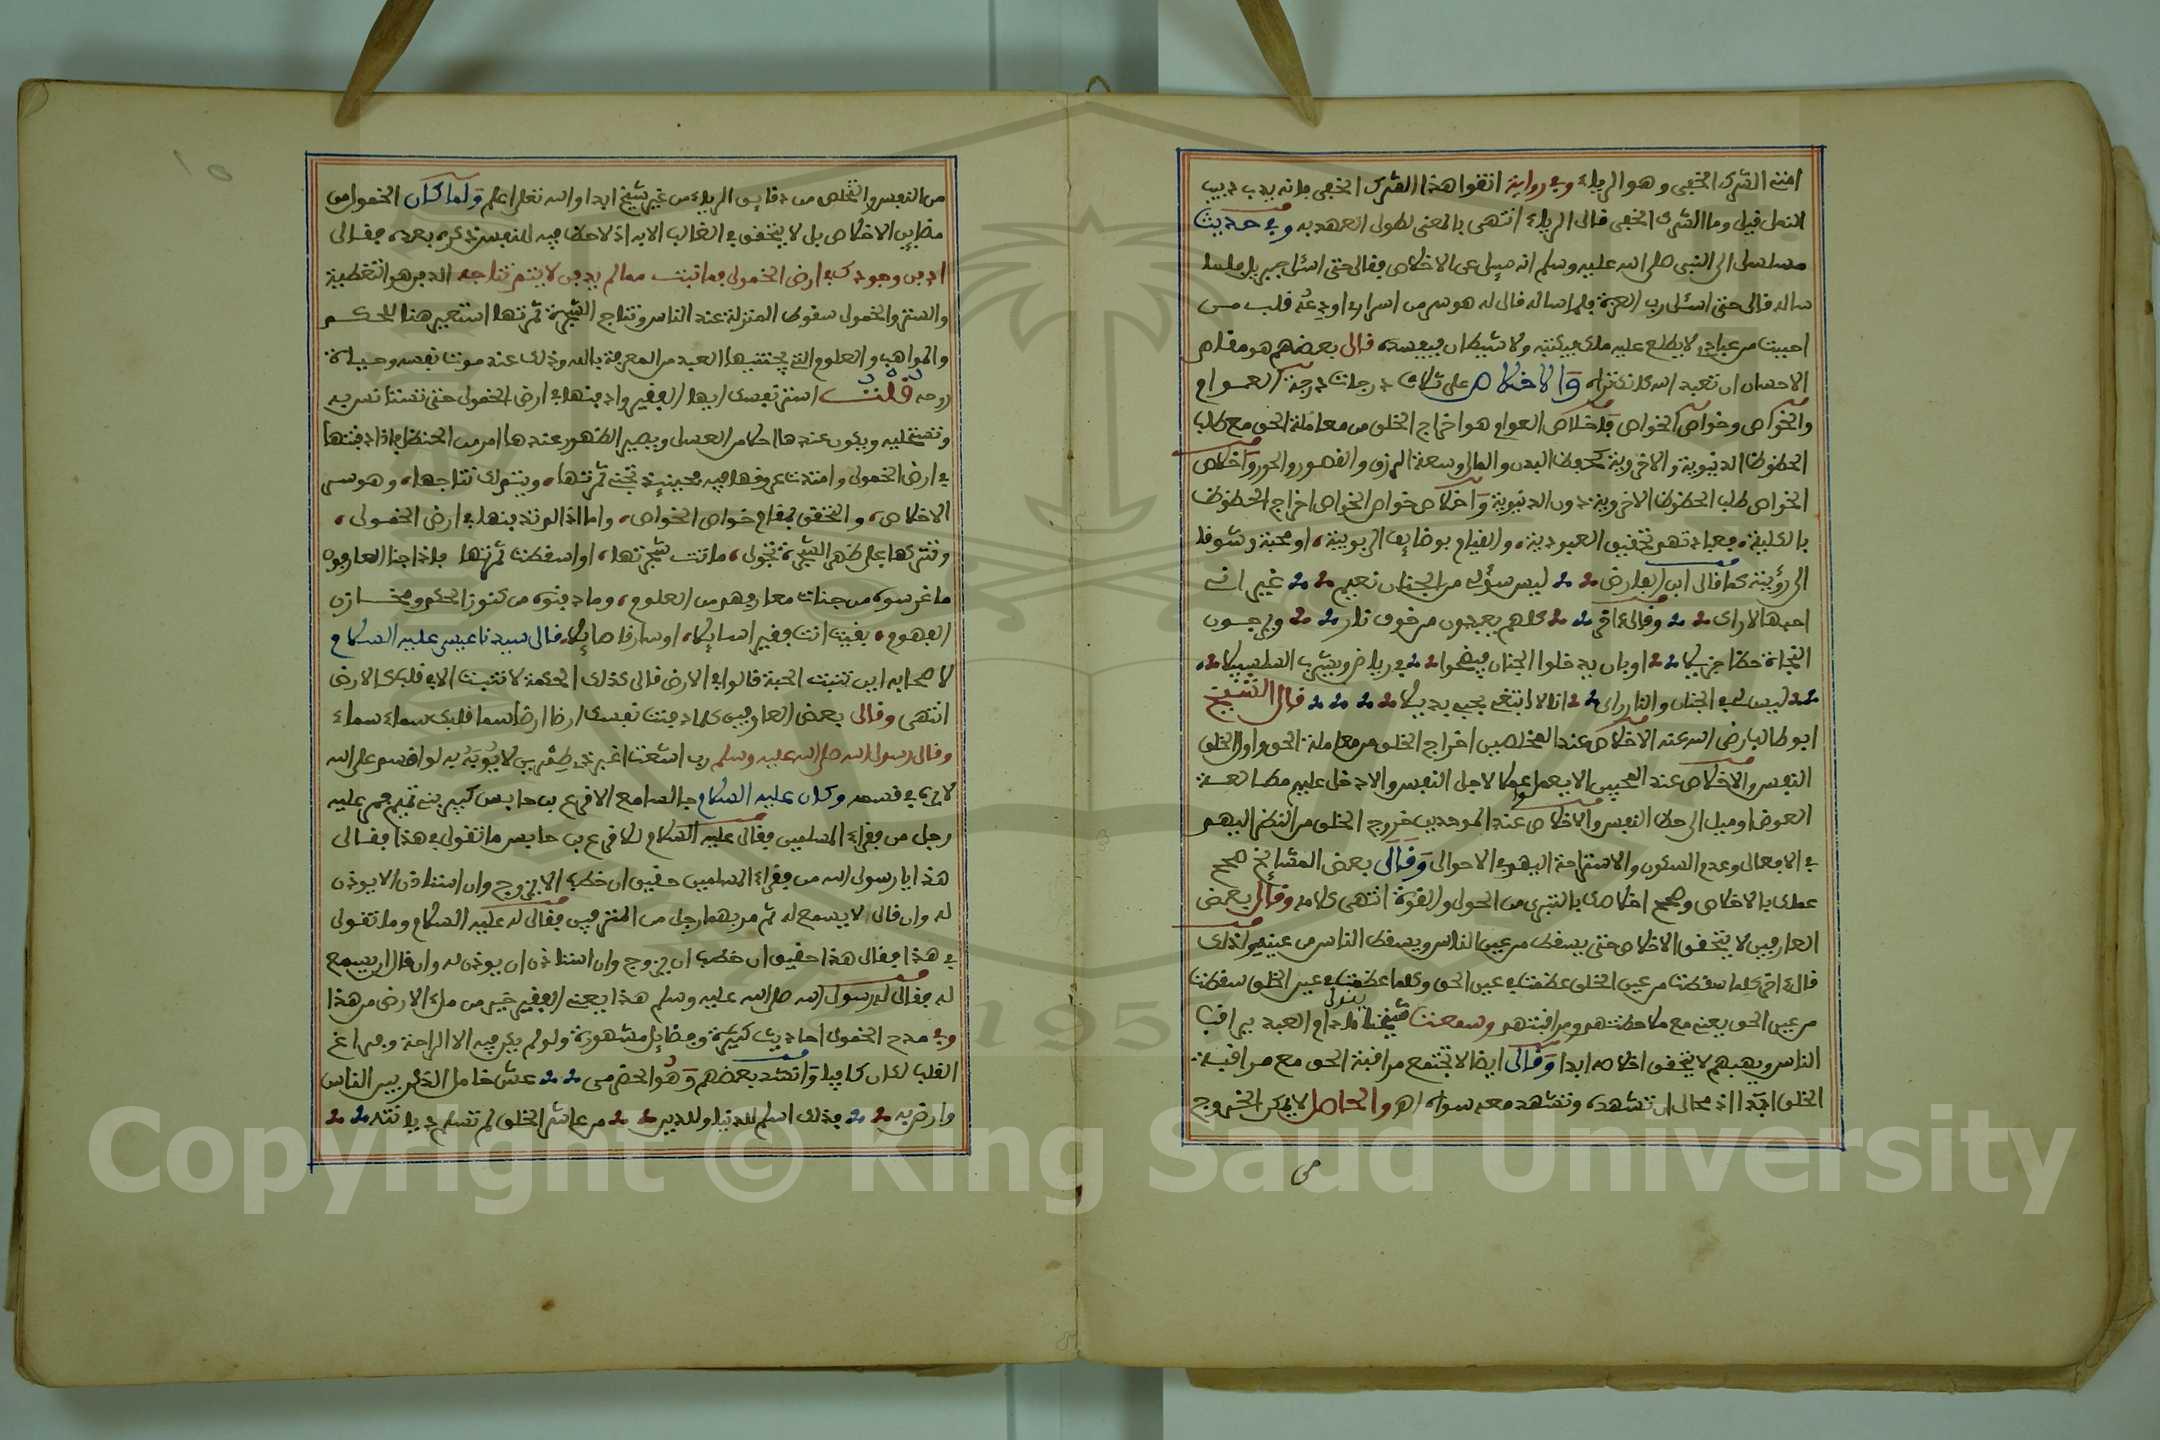 امتي الشرك الخفي وهو الرياء وفي رواية اتقوا هذا الشرك الخفي فانه يدب دبيب
النمل قيل وما الشرك الخفي قال الرياء انتهى بالمعنى لطول العهد به وفي حديث
مسلسل الى النبي صلى الله عليه وسلم انه سيل عن الاخلاص فقال حتى اسئل جبريل فلما
ساله قال حتى اسئل رب العزة فلما ساله قال له هو سر من اسراري اودعته قلب من
احببت من عبادي لا يطلع عليه ملك فيكتبه ولا شيطان فيفسده قال بعضهم هو مقام
الاحسان ان تعبد الله كانك تراه والاخلاص على ثلاث درجات درجة العوام
والخواص وخواص الخواص فاخلاص العوام هو اخراج الخلق من معاملة الحق مع طلب
الحظوظ الدنيوية والاخروية كحفظ البدن والمال وسعة الرزق والقصور والحور واخلاص
الخواص طلب الحظوظ الاخروية دون الدنيوية واخلاص خواص الخواص اخراج الحظوظ
بالكلية فعبادتهم تحقيق العبودية والقيام بوظايف الربوبية او محبة وشوقا
الى رؤيته كما قال ابن الفارض ليس سؤلي من الجنان نعيم غير اني
احبها لاراك وقال اخر كلهم يعبدون من خوف نار ويرجون
النجاة حظا جزيلا او بان يدخلوا الجنان فيضحوا في رياض ويشربوا السلسبيلا
ليس لي في الجنان والنار راي انا لا ابتغي بحبي بديلا قال الشيخ
ابو طالب رضي الله عنه الاخلاص عند المخلصين اخراج الخلق من معاملة الحق واول الخلق
النفس والاخلاص عند المحبين الا يعمل عملا لاجل النفس والا دخل عليه مطالعة
العوض او ميل الى حظ النفس والاخلاص عند الموحدين خروج الخلق من النظر اليهم
في الافعال وعدم السكون والاستراحة اليهم في الاحوال وقال بعض المشايخ صحح
عملك بالاخلاص وصحح اخلاصك بالتبري من الحول والقوة انتهى كلامه وقال بعض
العارفين لا يتحقق الاخلاص حتى يسقط من عين الناس ويسقط الناس من عينه ولذلك
قال اخر كلما سقطت من عين الخلق عظمت في عين الحق وكلما عظمت في عين الخلق سقطت
من عين الحق يعني مع ملاحظتهم ومراقبتهم وسمعت شيخنا يقول مادام العبد يراقب
الناس ويهابهم لا يتحقق اخلاصه ابدا وقال ايضا لا تجتمع مراقبة الحق مع مراقبة
الخلق ابدا اذ محال ان تشهده وتشهد معه سواه اهـ والحاصل لا يمكن الخروج
من
من النفس والتخلص من دقايق الرياء من غير شيخ ابدا والله تعلى اعلم ولما كان الخمول من
مظاين الاخلاص بل لا يتحقق في الغالب الا به اذ لا حظ فيه للنفس ذكره بعده فقال
ادفن وجودك في ارض الخمول فما نبت مما لم يدفن لا يتم نتاجه الدفن هو التغطية
والستر والخمول سقوط المنزلة عند الناس ونتاج الشجرة ثمرتها استعير هنا للحكم
والمواهب والعلوم التي يجتنيها العبد من المعرفة بالله وذلك عند موت نفسه وحياة
روحه قلت استر نفسك ايها الفقير وادفنها في ارض الخمول حتى تستانس به
وتستحليه ويكون عندها احلى من العسل ويصير الظهور عندها امر من الحنظل فاذا دفنتها
في ارض الخمول وامتدت عروقها فيه فحينئذ تجني ثمرتها ويتم لك نتاجها وهو سر
الاخلاص والتحقق بمقام خواص الخواص واما اذا لم تدفنها في ارض الخمول
وتتركها على ظهر الشهرة تجول ماتت شجرتها او اسقطت ثمرتها فاذا جنا العارفون
ما غرسوه من جنات معارفهم من العلوم وما دفنوه من كنوز الحكم ومخازن
الفهوم بقيت انت فقيرا سايلا او سارقا صايلا قال سيدنا عيسى عليه السلام
لاصحابه اين تنبت الحبة قالوا في الارض قال كذلك الحكمة لا تنبت الا في قلب كالارض
انتهى وقال بعض العارفين كلما دفنت نفسك ارضا ارضا سما قلبك سماء سماء
وقال رسول الله صلى الله عليه وسلم رب اشعث اغبر ذي طمرين لا يؤبه به لو اقسم على الله
لابره في قسمه وكان عليه السلام جالسا مع الاقرع بن حابس كبير بني تميم فمر عليه
رجل من فقراء المسلمين فقال عليه السلام للاقرع بن حابس ما تقول في هذا فقال
هذا يا رسول الله من فقراء المسلمين حقيق ان خطب الا يزوج وان استاذن الا يوذن
له وان قال الا يسمع له ثم مر بهما رجل من المترفين فقال له عليه السلام وما تقول
في هذا فقال هذا حقيق ان خطب ان يزوج وان استاذن ان يوذن له وان قال ان يسمع
له فقال له رسول الله صلى الله عليه وسلم هذا يعني الفقير خير من ملء الارض من هذا
وفي مدح الخمول احاديث كثيرة وفضايل مشهورة ولو لم يكن فيه الا الراحة وفراغ
القلب لكان كافيا وانشد بعضهم وهو الحضرمي عش خامل الذكر بين الناس
وارض به فذلك اسلم للدنيا وللدين من عاشر الخلق لم تسلم ديانته